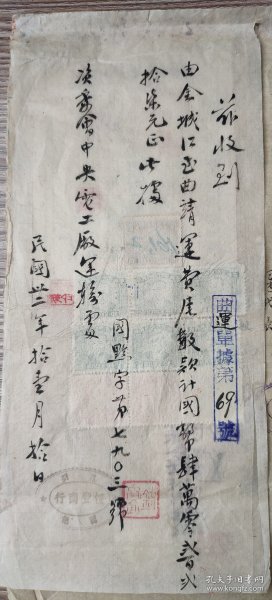 茲收到
由金城江至曲靖運費尾數款計國幣肆萬零弍百弍
拾柒元正此據
資委會中央電工廠運務處
國黔字第七九〇三號
民國卅二年拾壹月拾日
曲運單據第69號